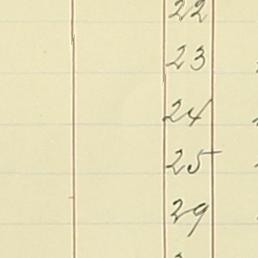 22
23
24
25
29